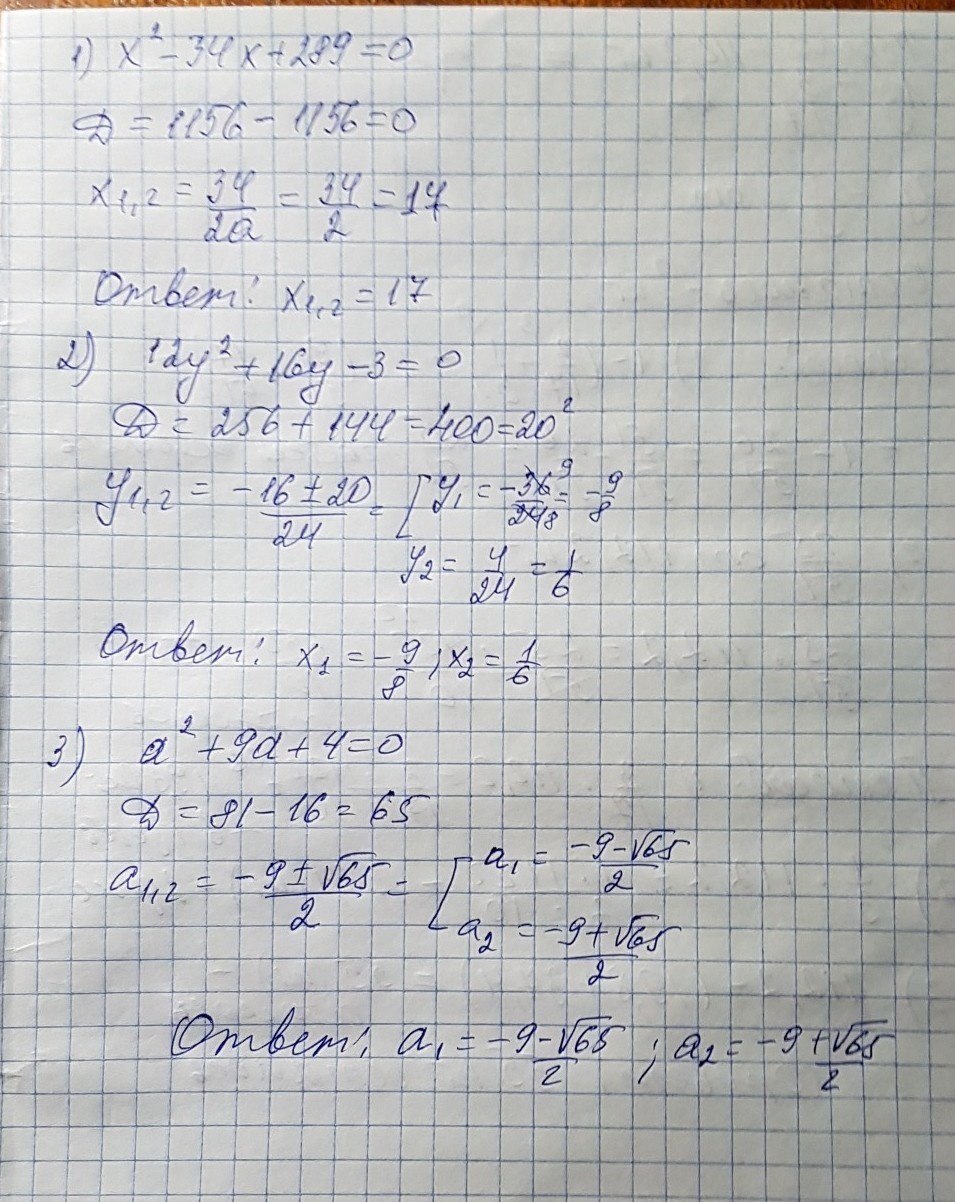 1) x² - 34x + 289 = 0
D = 1156 - 1156 = 0
x₁,₂ = 34/2a = 34/2 = 17
Ответ: x₁,₂ = 17
2) 12y² + 16y - 3 = 0
D = 256 + 144 = 400 = 20²
y₁,₂ = (-16 ± 20)/24 = [ y₁ = -36/24 9/8 = -9/8
y₂ = 4/24 = 1/6
Ответ: x₁ = -9/8 ; x₂ = 1/6
3) a² + 9a + 4 = 0
D = 81 - 16 = 65
a₁,₂ = (-9 ± √65)/2 = [ a₁ = (-9 - √65)/2
a₂ = (-9 + √65)/2
Ответ: a₁ = (-9 - √65)/2 ; a₂ = (-9 + √65)/2